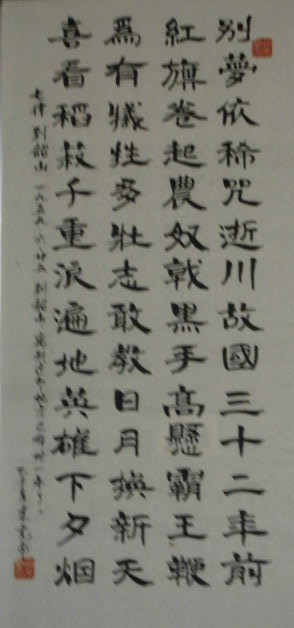 别夢依稀咒逝川故國三十二年前
紅旗卷起農奴戟黑手高懸霸王鞭
爲有犧牲多壯志敢教日月換新天
喜看稻菽千重浪遍地英雄下夕烟
七律 到韶山 一九五九六廿五到韶山